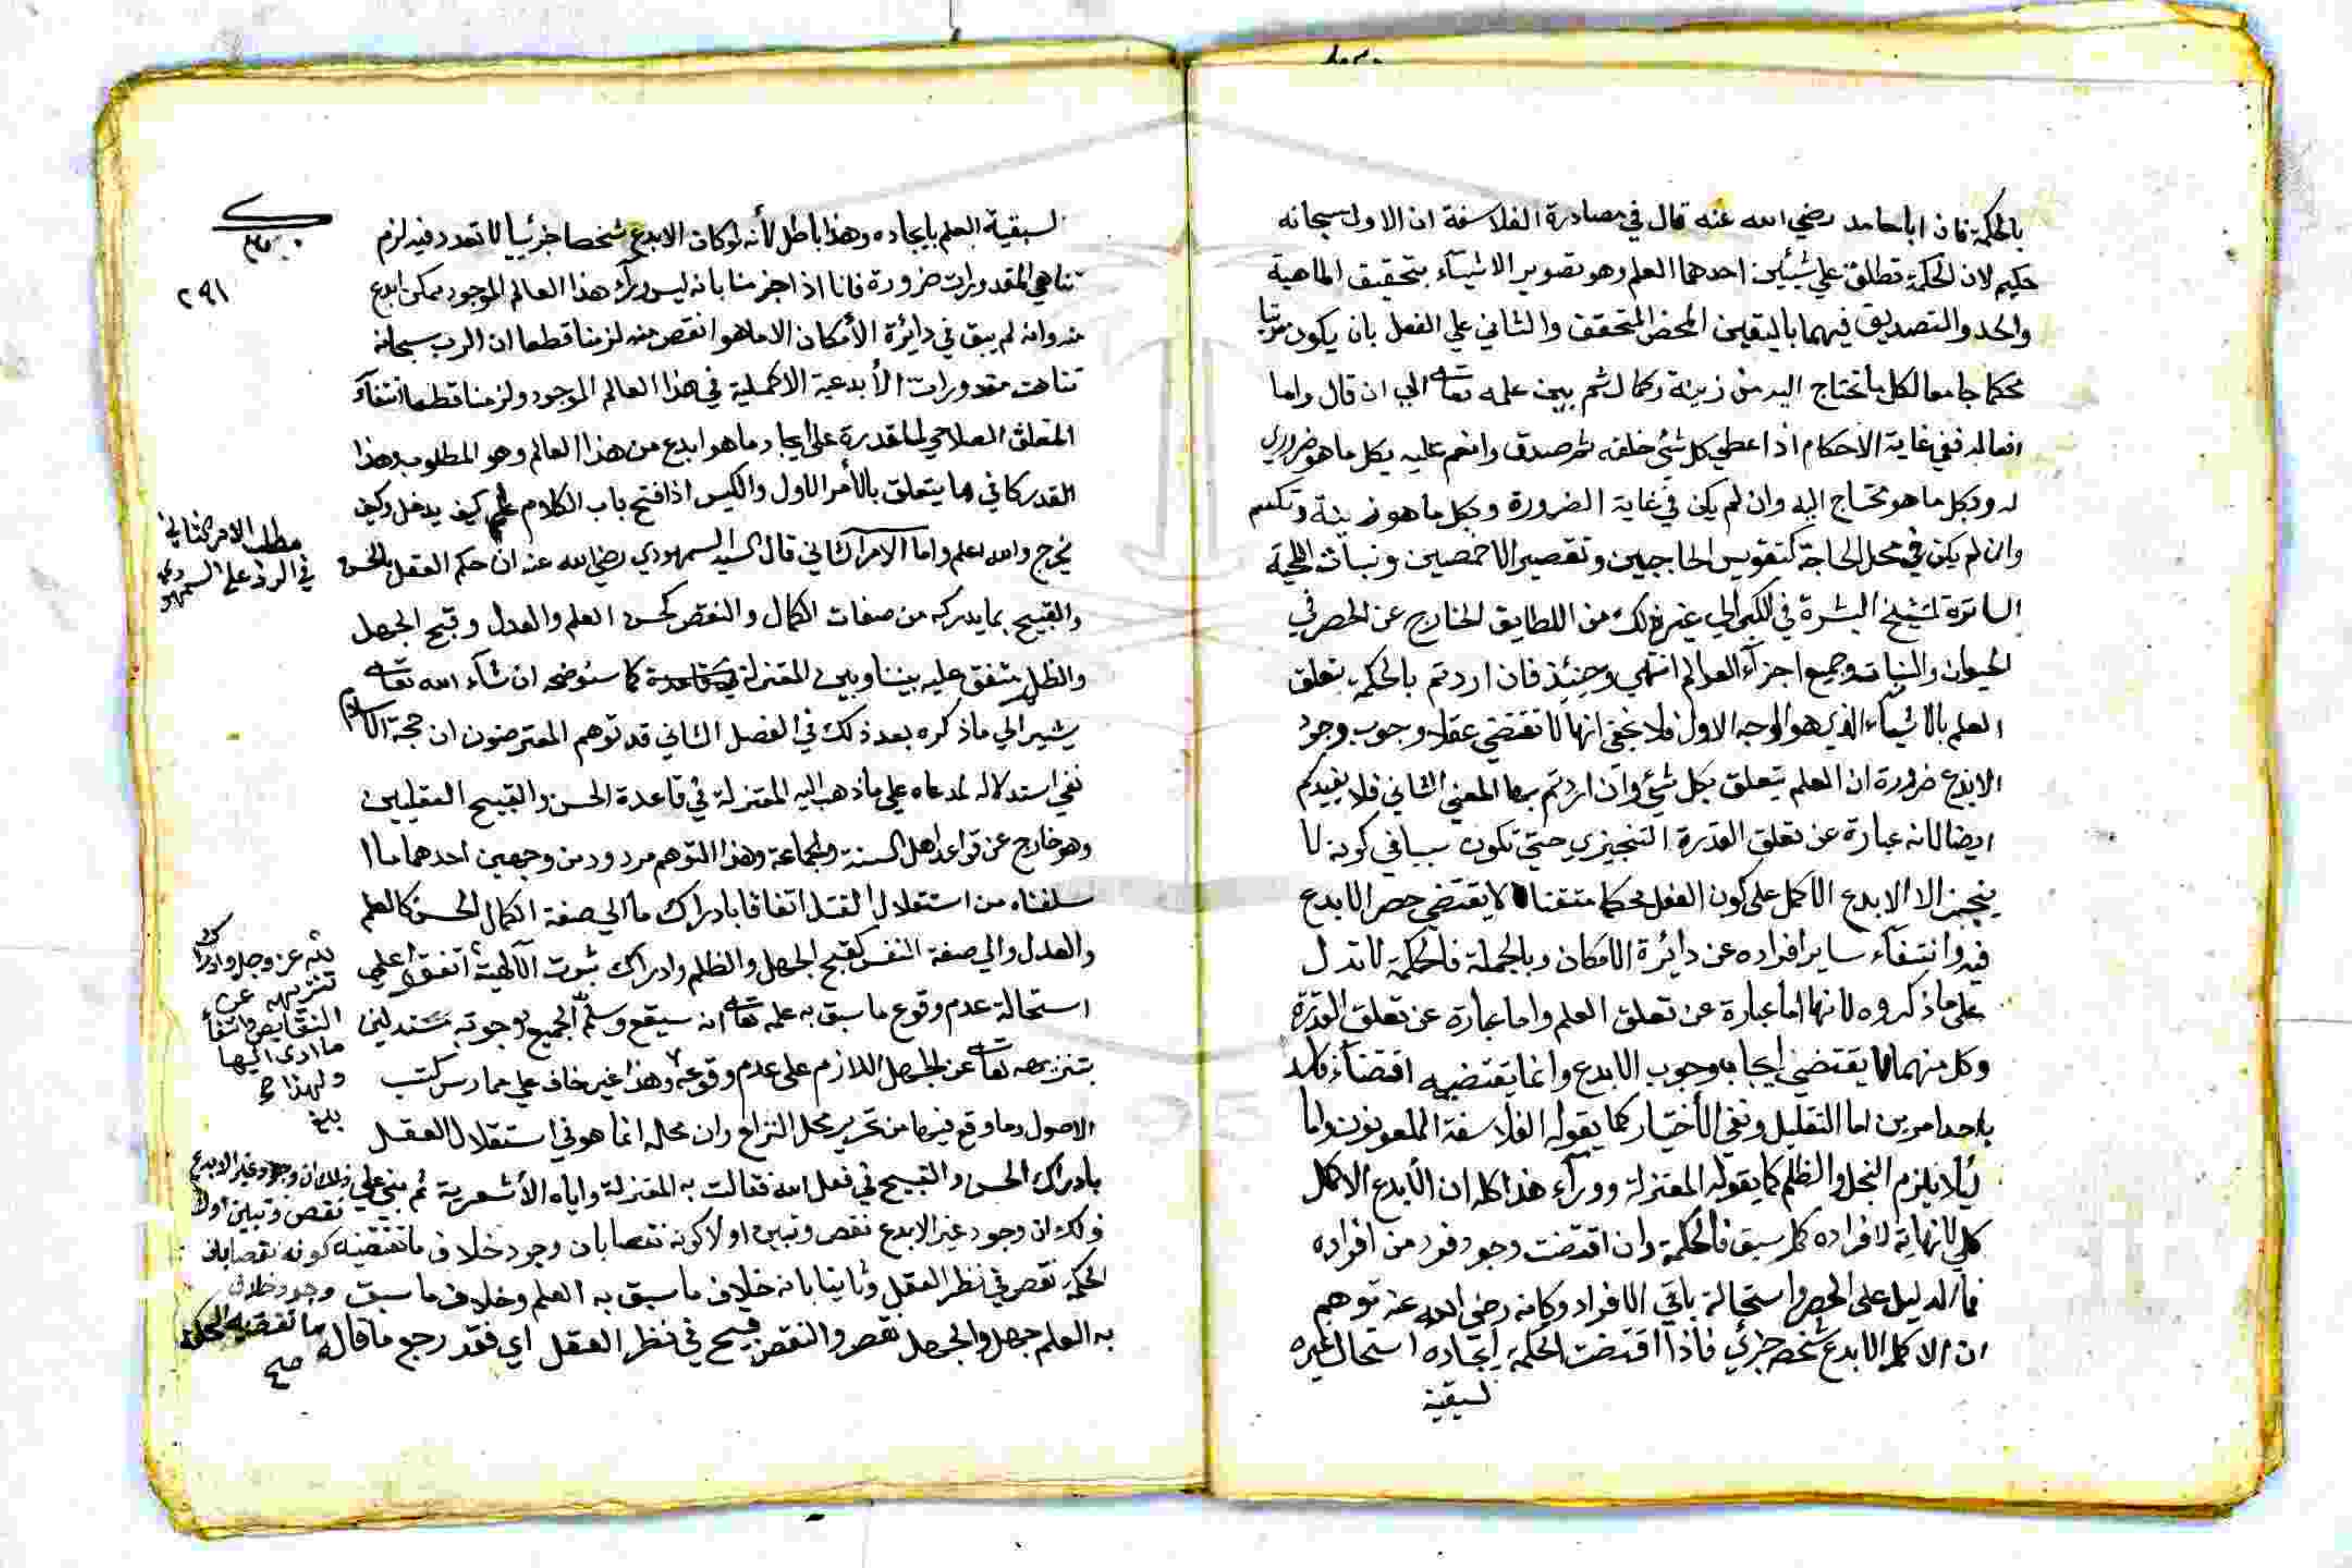 بالحكمة فان ابا حامد رضي الله عنه قال في مصادرة الفلاسفة ان الاول سبحانه
حكيم لان الحكمة تطلق على شيئين احدهما العلم وهو تصوير الاشياء بتحقيق الماهية
والحد والتصديق فيهما باليقين المحض المحقق والثاني على الفعل بان يكون مرتبا
محكما جامعا لكل ما تحتاج اليه من زينة وكمال ثم بين علمه تعالى الى ان قال واما
افعاله ففي غاية الاحكام اذ اعطى كل شئ خلقه ثم صدق وانعم عليه بكل ما هو ضروري
له وبكل ما هو محتاج اليه وان لم يكن في غاية الضرورة وبكل ما هو زينة وتكميل
وان لم يكن في محل الحاجة كتقويس الحاجبين وتقصير الاخمصين ونبات اللحية
الساترة لتشنج البشرة في الكبر الى غير ذلك من اللطايف الخارج عن الحصر في
الحيوان والنبات وجميع اجزآء العوالم انتهى وحينئذ فان اردتم بالحكمة تعلق
العلم بالاشيآء الذي هو الوجه الاول فلا يخفى انها لا تقتضي عقلا وجوب وجود
الابدع ضرورة ان العلم يتعلق بكل شئ وان اردتم بها المعنى الثاني فلا يفيدكم
ايضا لانه عبارة عن تعلق القدرة التنجيزي حتى تكون سببا في كونه لا
ينجز الا الابدع الاكمل على كون الفعل محكما متقنا لا يقتضي حصر الابدع
فيه وانتفآء ساير افراده عن دائرة الامكان وبالجملة فالحكمة لا تدل
على ما ذكروه لانها اما عبارة عن تعلق العلم واما عبارة عن تعلق القدرة
وكل منهما لا يقتضي ايجابه وجوب الابدع وانما يقتضيه اقتضآء
باحد امرين اما التعليل ونفي الأختيار كما يقوله الفلاسفة الملعونون واما
لئلا يلزم البخل والظلم كما يقوله المعتزلة وورآء هذا كله ان الأبدع الاكمل
كلي لا نهاية لافراده كما سبق فالحكمة وان اقتضت وجود فرد من افراده
فما الدليل على الحصر واستحالة باقي الافراد وكانه رضي الله عنه توهم
ان الاكمل الابدع شخص جزئي فاذا اقتضت الحكمة ايجاده استحال غيره
لسبقية
٢٩١
لسبقية العلم بايجاده وهذا باطل لأنه لو كان الابدع شخصا جزئيا لا تعدد فيه لزم
تناهي المقدورات ضرورة فانا اذا جزمنا بانه ليس ورآء هذا العالم الموجود ممكن ابدع
منه وانه لم يبق في دائرة الأمكان الا ما هو انقص منه لزمنا قطعا ان الرب سبحانه
تناهت مقدورات الأبدعية الاكملية في هذا العالم الموجود ولزمنا قطعا انتفآء
التعلق الصلاحي للقدرة على ايجاد ما هو ابدع من هذا العالم وهو المطلوب وهذا
القدر كافي فما يتعلق بالأمر الاول والكيس اذا فتح باب الكلام علم كيف يدخل وكيف
يخرج والله اعلم واما الامر الثاني قال السيد السمهودي رضي الله عنه ان حكم العقل بالحسن
مطلب الامر الثاني
في الرد على السمهودي
والقبيح بما يدركه من صفات الكمال والنقص كحسن العلم والعدل وقبح الجهل
والظلم متفق عليه بيننا وبين المعتزلة كما سنوضحه ان شآء الله تعالى
يشير الى ما ذكره بعد ذلك في الفصل الثاني قد توهم المعترضون ان حجة الاسلام
نفي استدلاله لمدعاه على ما ذهب اليه المعتزلة في قاعدة الحسن والقبيح العقليين
وهو خارج عن قواعد اهل السنة والجماعة وهذا التوهم مردود من وجهين احدهما ما ا
سلفناه من استقلال العقل اتفاقا بادراك ما الى صفة الكمال الحسن كالعلم
والعدل والى صفة النقص كقبح الجهل والظلم وادراك ثبوت الآلهية اتفقوا على
لله عز وجل وادراك
تنزيهه عن
النقايص وانتفآء
ما ادى اليها
ولهذا
استحالة عدم وقوع ما سبق به علمه تعالى انه سيقع وسلم الجميع وجوبه مستدلين
بتنزيهه تعالى عن الجهل اللازم على عدم وقوعه وهذا غير خاف على ممارس كتب
الاصول وما وقع فيها من تحرير محل النزاع وان محله انما هو في استقلال العقل
بادراك الحسن والقبيح في فعل الله فقالت به المعتزلة واباه الأشعرية ثم بنى على ذلك ان وجود غير الابدع
نقص وتبين اولا
ذلك ان وجود غير الابدع نقص وتبين اولا كونه نقصا بان وجود خلاف ما تقتضيه كونه نقصا بان
وجود خلاف
ما تقتضيه الحكمة
صح
الحكمة نقص في نظر العقل وثانيا بانه خلاف ما سبق به العلم وخلاف ما سبق
به العلم جهل والجهل نقص والنقص قبيح في نظر العقل اي فقد رجع ما قاله